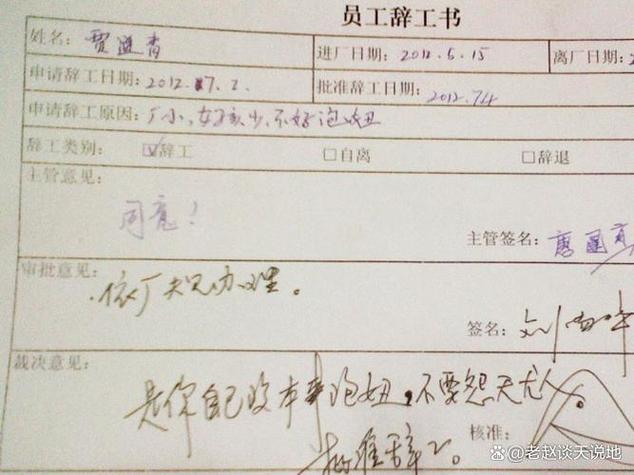 员工辞工书
姓名： 贾延青 进厂日期：2012.5.15 离厂日期：20
申请辞工日期：2012.7.2. 批准辞工日期：2012.7.4
申请辞工原因：厂小，女孩少，不好泡妞
辞工类别： ☑辞工 □自离 □辞退
主管意见：
同意！
主管签名：唐国
审批意见：
依厂规办理。
签名：刘
裁决意见：
是你自己没本事泡妞，不要怨天尤人。
核准：
批准辞工。
@老赵谈天说地